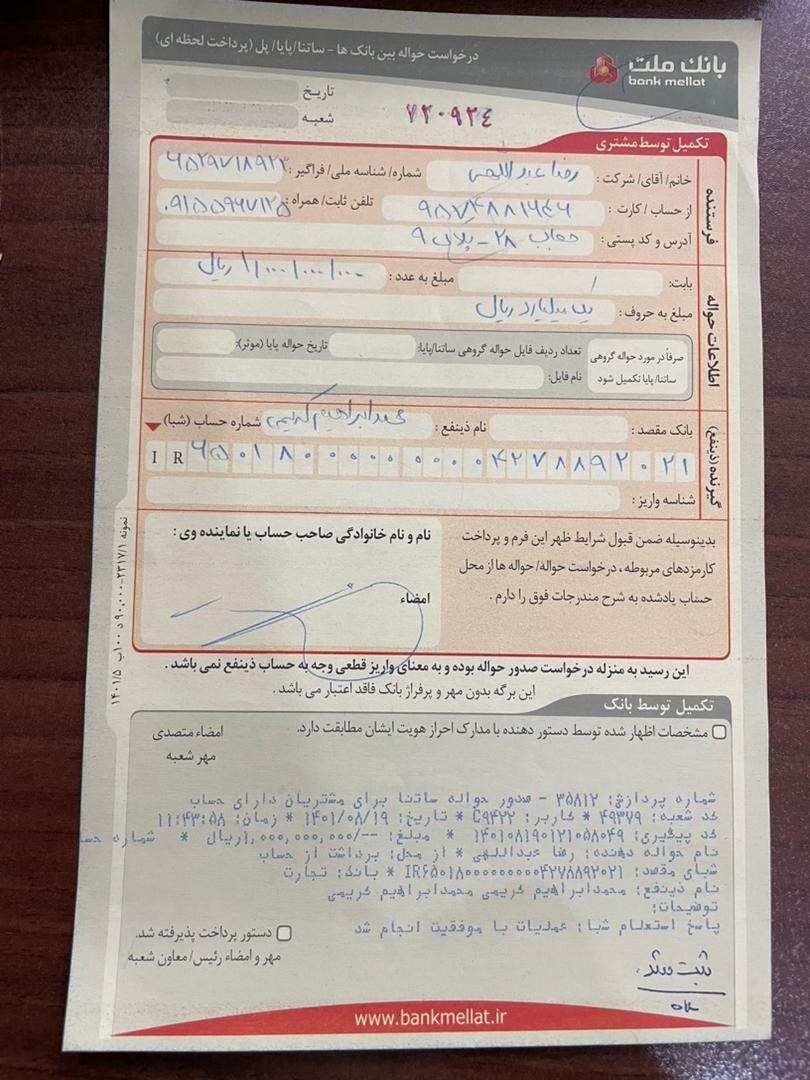 درخواست حواله بین بانک ها - ساتنا/پایا/ پل (پرداخت لحظه ای)
بانک ملت
bank mellat
تاریخ
شعبه
۷۲۰۹۲۴
تکمیل توسط مشتری
فرستنده
خانم/ آقای/ شرکت: رضا عبداللهی شماره/ شناسه ملی/ فراگیر:
از حساب/ کارت: تلفن ثابت/ همراه:
آدرس و کد پستی: حجاب ۲۸ - پلاک ۹
اطلاعات حواله
بابت: / مبلغ به عدد: ۱/۰۰۰/۰۰۰/۰۰۰ ریال
مبلغ به حروف: یک میلیارد ریال
صرفاً در مورد حواله گروهی ساتنا/ پایا تکمیل شود
تعداد ردیف فایل حواله گروهی ساتنا/پایا: تاریخ حواله پایا (موثر):
نام فایل:
گیرنده (ذینفع)
بانک مقصد: نام ذینفع: محمدابراهیم کریمی شماره حساب (شبا)
IR ۶۵۰۱۸۰۰۰۰۰۰۰۰۰۰۴۲۷۸۸۹۲۰۲۱
شناسه واریز:
بدینوسیله ضمن قبول شرایط ظهر این فرم و پرداخت
کارمزدهای مربوطه، درخواست حواله/ حواله ها از محل
حساب یادشده به شرح مندرجات فوق را دارم.
نام و نام خانوادگی صاحب حساب یا نماینده وی:
امضاء
این رسید به منزله درخواست صدور حواله بوده و به معنای واریز قطعی وجه به حساب ذینفع نمی باشد.
این برگه بدون مهر و پرفراژ بانک فاقد اعتبار می باشد.
تکمیل توسط بانک
مشخصات اظهار شده توسط دستور دهنده با مدارک احراز هویت ایشان مطابقت دارد.
امضاء متصدی
مهر شعبه
شماره پردازش: ۳۵۸۱۲ - صدور حواله ساتنا برای مشتریان دارای حساب
کد شعبه: ۴۹۳۷۹ * کاربر: C۹۴۲۲ * تاریخ: ۱۴۰۱/۰۸/۱۹ * زمان: ۱۱:۴۳:۵۸
کد پیگیری: ۱۴۰۱۰۸۱۹۰۱۲۱۰۵۸۰۴۹ * مبلغ: --/۱,۰۰۰,۰۰۰,۰۰۰ریال * شماره حسا
نام حواله دهنده: رضا عبداللهی * از محل: برداشت از حساب
شبای مقصد: IR۶۵۰۱۸۰۰۰۰۰۰۰۰۰۰۴۲۷۸۸۹۲۰۲۱ * بانک: تجارت
نام ذینفع: محمدابراهیم کریمی محمدابراهیم کریمی
توضیحات:
پاسخ استعلام شبا: عملیات با موفقیت انجام شد
دستور پرداخت پذیرفته شد.
مهر و امضاء رئیس/ معاون شعبه
ثبت شد
www.bankmellat.ir